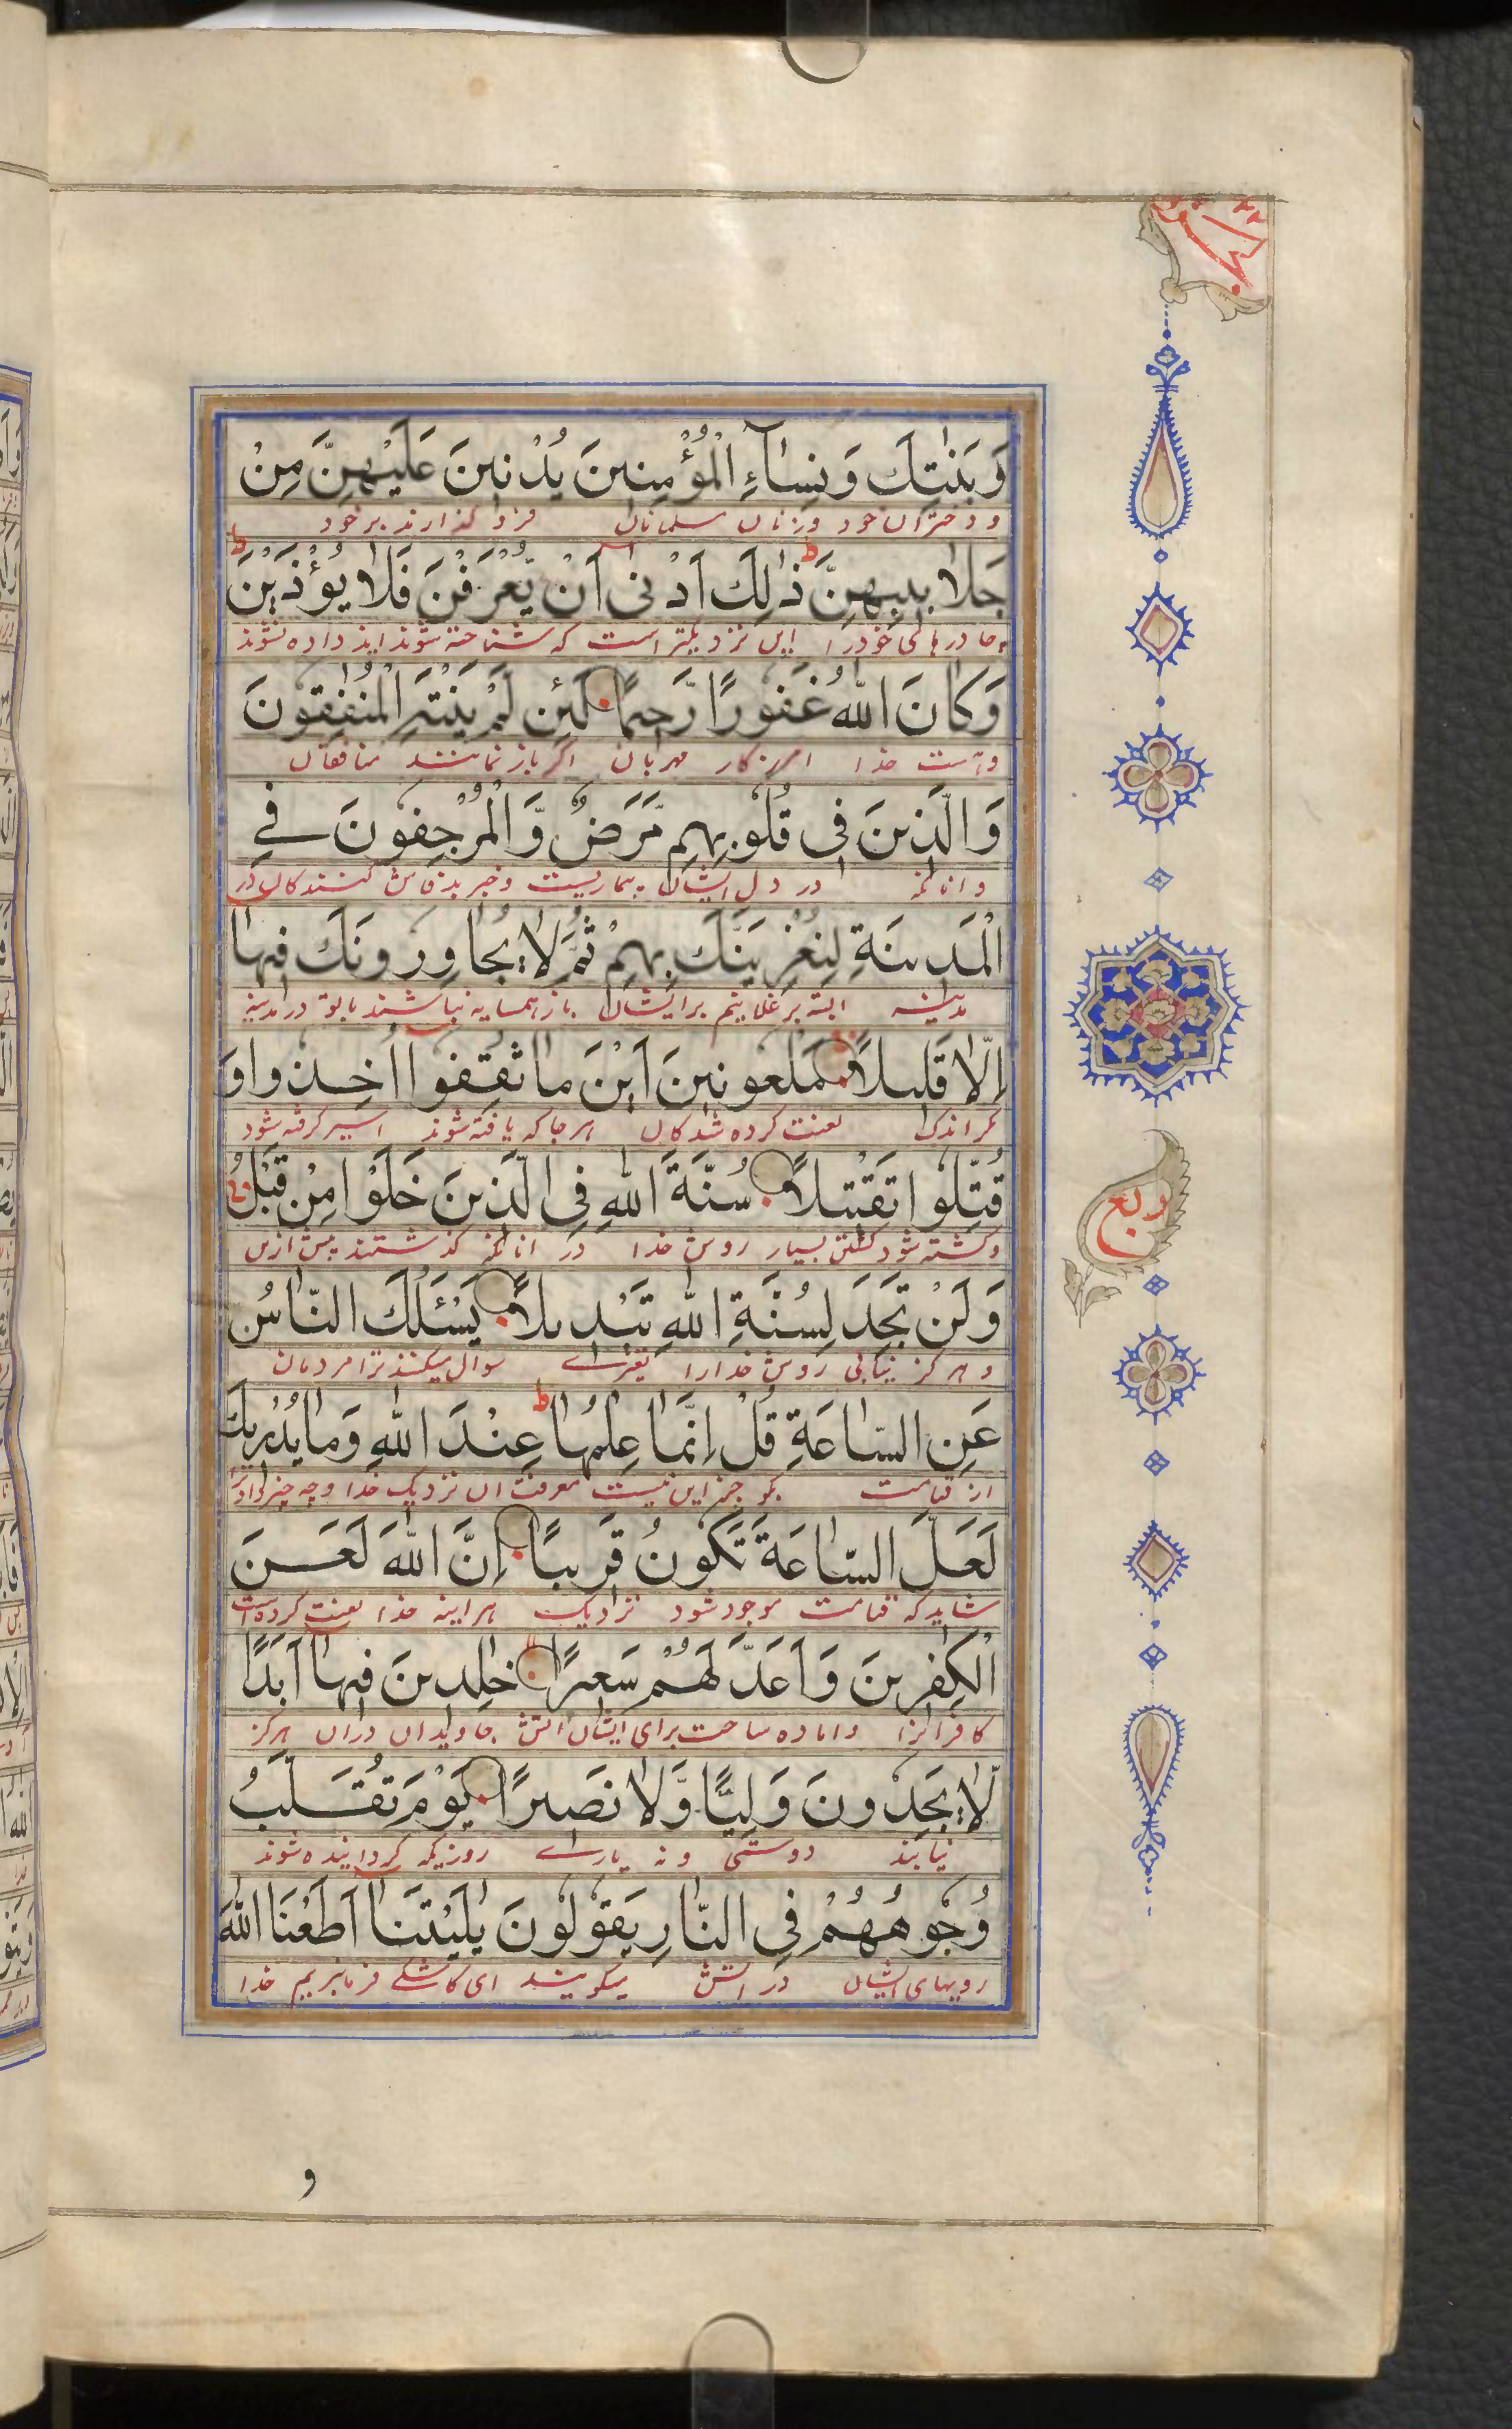 وَبَنٰتِكَ وَنِسَآءِ الْمُؤْمِنِينَ يُدْنِينَ عَلَيْهِنَّ مِنْ
و دختران خود و زنان مسلمانان فرو گذارند بر خود
جَلَابِيبِهِنَّ ط ذٰلِكَ اَدْنٰى اَنْ يُّعْرَفْنَ فَلَا يُؤْذَيْنَ ط
چادرهای خود را این نزدیکتر است که شناخته شوند ایذا داده نشوند
وَكَانَ اللّٰهُ غَفُورًا رَّحِيمًا لَئِن لَمْ يَنْتَهِ الْمُنٰفِقُونَ
و هست خدا امرزکار مهربان اگر باز نمانند منافقان
وَالَّذِينَ فِى قُلُوبِهِم مَّرَضٌ وَّالْمُرْجِفُونَ فِے
و انانکه در دل ایشان بیماریست و خبر بد فاش کنندکان در
الْمَدِينَةِ لَنُغْرِيَنَّكَ بِهِمْ ثُمَّ لَا يُجَاوِرُونَكَ فِيهَا
مدینه البته برغلانیم بر ایشان باز همسایه نباشند با تو در مدینه
اِلَّا قَلِيلًا مَلْعُونِينَ اَيْنَ مَا ثُقِفُوا اُخِذُوا وَ
مگر اندک لعنت کرده شدکان هر جا که یافته شوند اسیر گرفته شود
قُتِّلُوا تَقْتِيلًا سُنَّةَ اللّٰهِ فِى الَّذِينَ خَلَوْا مِنْ قَبْلُ
و کشته شود کشتن بسیار روش خدا در انانکه گذشتند پیش ازین
وَلَنْ تَجِدَ لِسُنَّةِ اللّٰهِ تَبْدِيلًا يَسْئَلُكَ النَّاسُ
و هرگز نیابی روش خدا را تغیرے سوال میکنند ترا مردمان
عَنِ السَّاعَةِ قُلْ اِنَّمَا عِلْمُهَا عِنْدَ اللّٰهِ ط وَمَا يُدْرِيكَ
از قیامت بگو جز این نیست معرفت ان نزدیک خدا و چه چیز
لَعَلَّ السَّاعَةَ تَكُونُ قَرِيبًا اِنَّ اللّٰهَ لَعَنَ
شاید که قیامت موجود شود نزدیک هراینه خدا لعنت کرده است
الْكٰفِرِينَ وَاَعَدَّ لَهُمْ سَعِيرًا خٰلِدِينَ فِيهَا اَبَدًا
کافرانرا و اماده ساخت برای ایشان اتش جاویدان دران هرگز
لَا يَجِدُونَ وَلِيًّا وَّلَا نَصِيرًا يَوْمَ تُقَلَّبُ
نیابند دوستی و نه یارے روزیکه گردانیده شوند
وُجُوهُهُمْ فِى النَّارِ يَقُولُونَ يٰلَيْتَنَا اَطَعْنَا اللّٰهَ
رویهای ایشان در اتش میگویند ای کاشکے فرمانبریم خدا
ربع
و